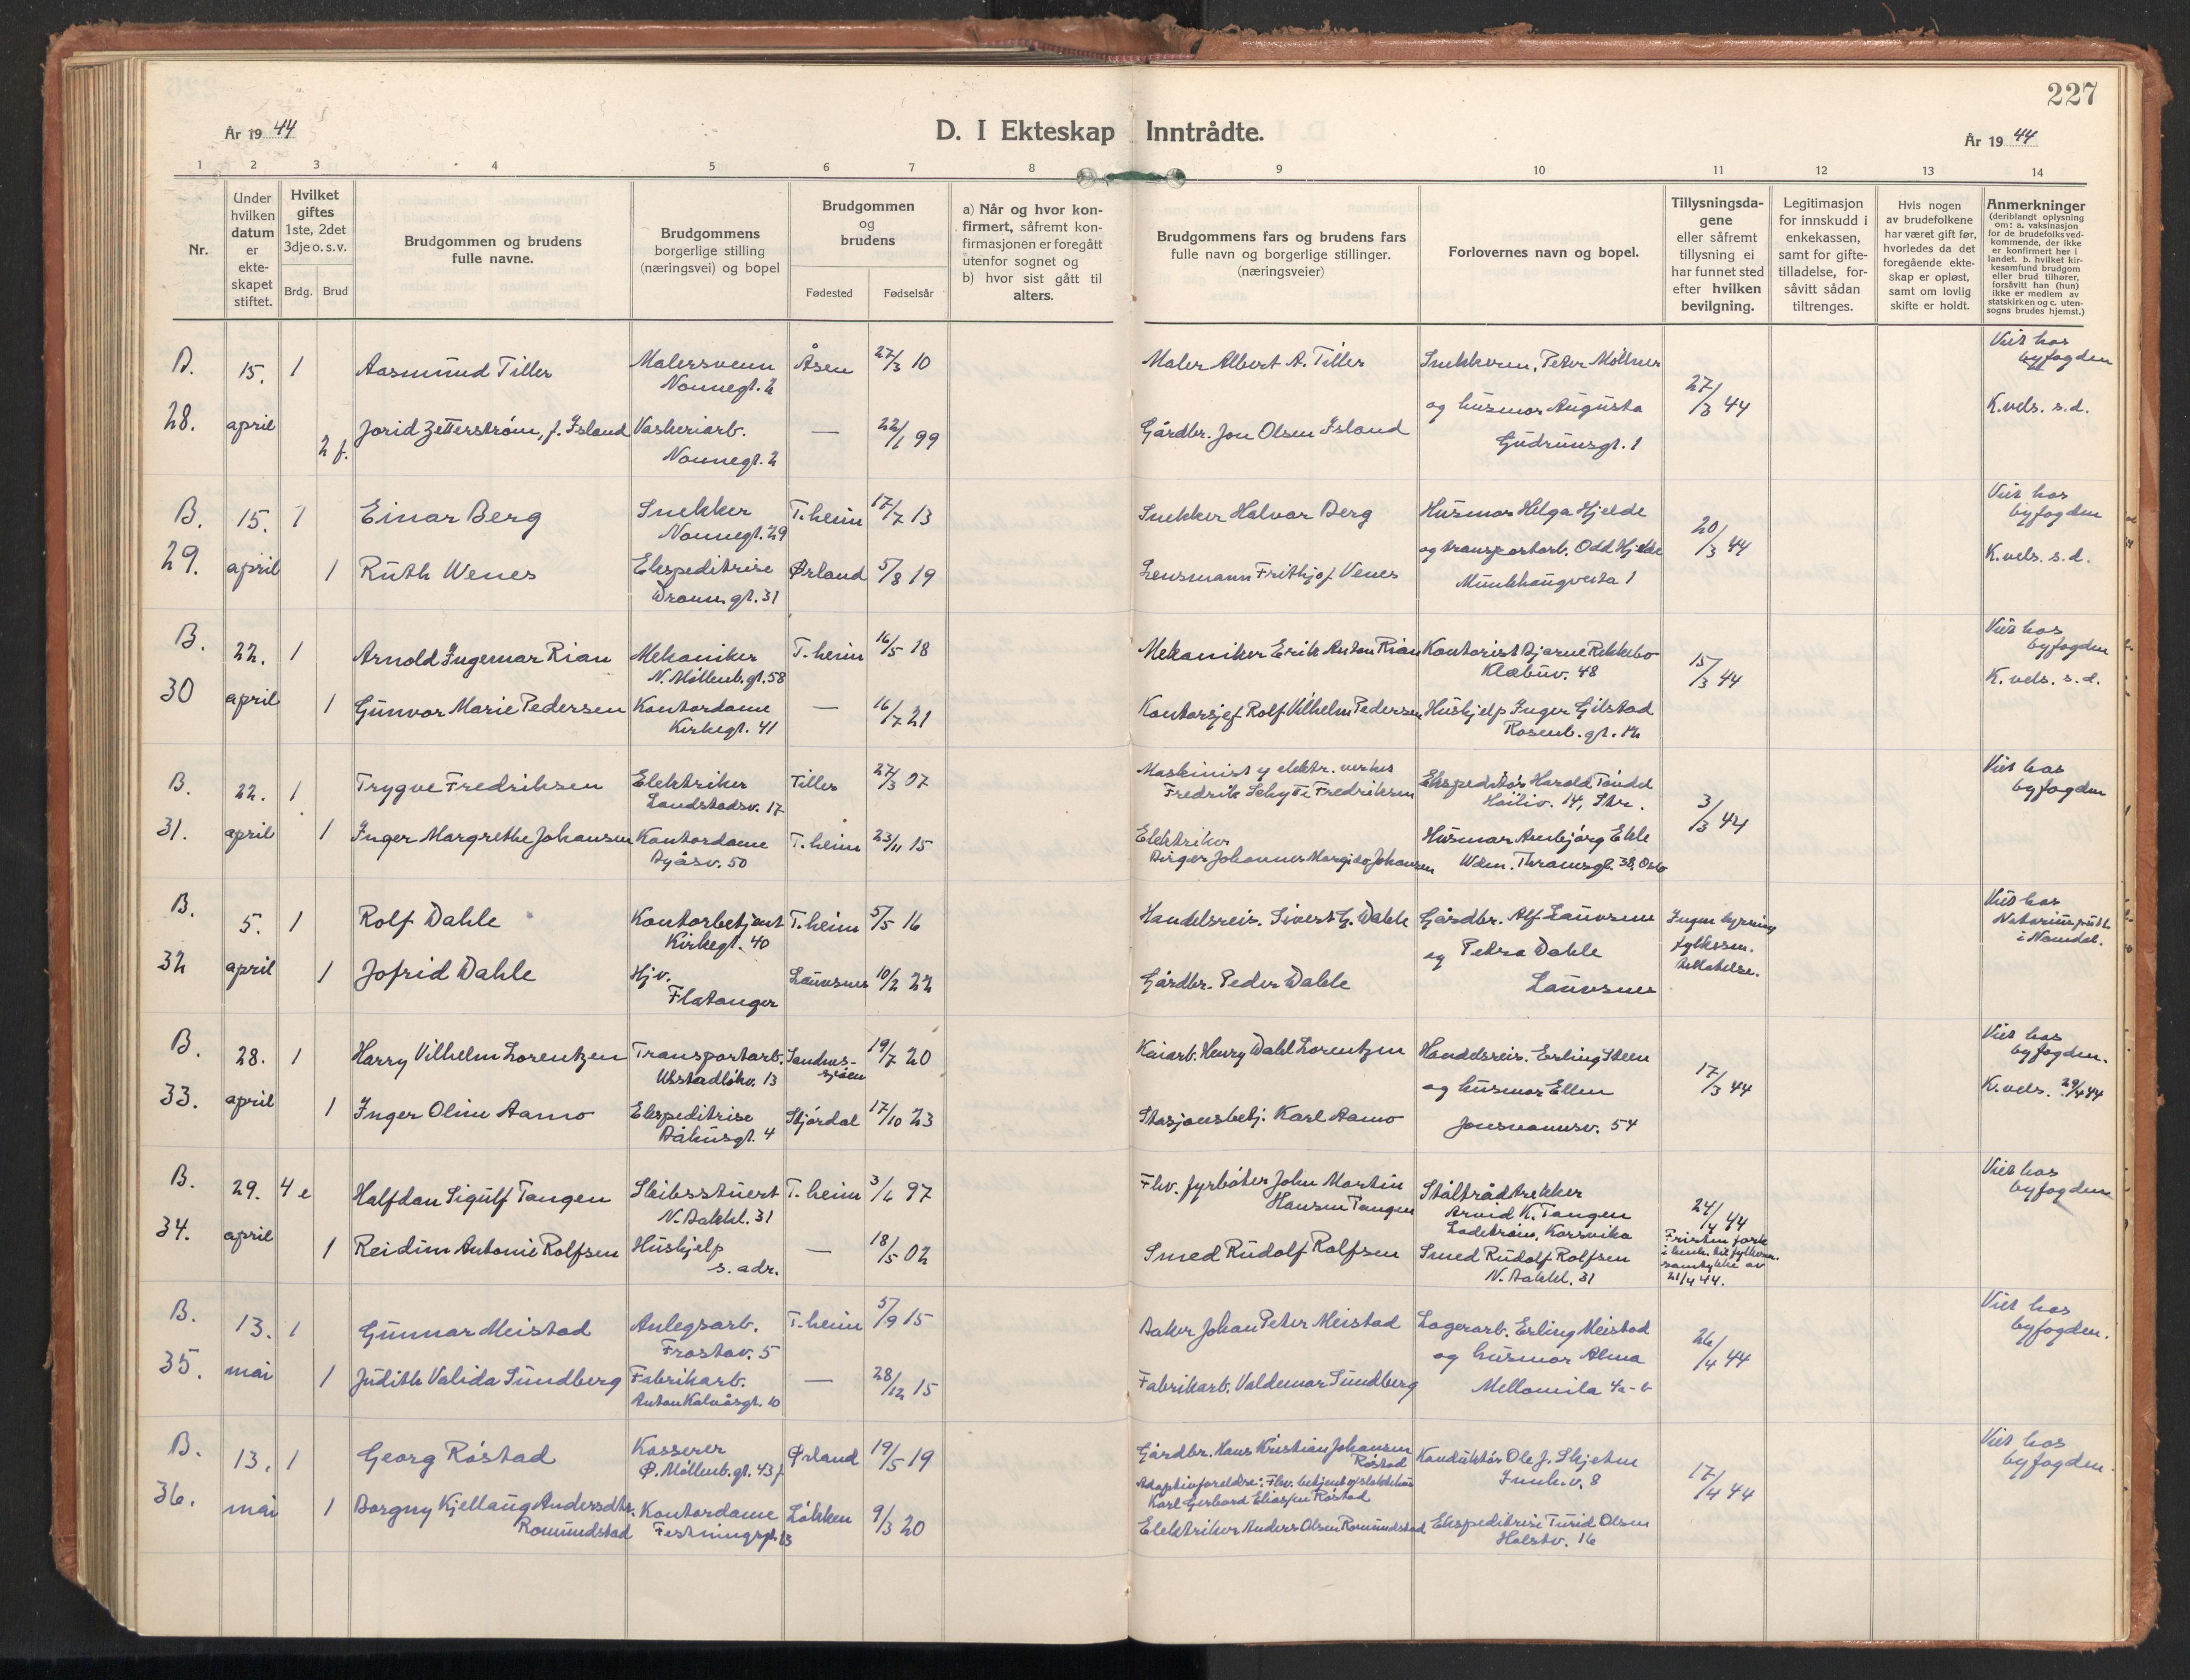 227
År 19 44
D. I Ekteskap Inntrådte.
År 19 44
1 2 3 4 5 6 7 8 9 10 11 12 13 14
Nr.
Under hvilken datum er ekte-skapet stiftet.
Hvilket giftes 1ste, 2det 3dje o. s. v.
Brdg. Brud
Brudgommen og brudens fulle navne.
Brudgommens borgerlige stilling (næringsvei) og bopel
Brudgommen og brudens
Fødested Fødselsår
a) Når og hvor kon-firmert, såfremt kon-firmasjonen er foregått utenfor sognet og
b) hvor sist gått til alters.
Brudgommens fars og brudens fars fulle navn og borgerlige stillinger. (næringsveier)
Forlovernes navn og bopel.
Tillysningsda-gene eller såfremt tillysning ei har funnet sted efter hvilken bevilgning.
Legitimasjon for innskudd i enkekassen, samt for gifte-tilladelse, for-såvitt sådan tiltrenges.
Hvis nogen av brudefolkene har været gift før, hvorledes da det foregående ekte-skap er opløst, samt om lovlig skifte er holdt.
Anmerkninger (deriblandt oplysning om: a. vaksinasjon for de brudefolks ved-kommende, der ikke er konfirmert her i landet. b. hvilket kir-kesamfund brudgom eller brud tilhører, forsåvitt han (hun) ikke er medlem av statskirken og c. uten-sogns brudes hjemst.)
B. 15. 1 Aasmund Tiller Malersvenn Nonnegt. 2 Åsen 27/3 10 Maler Albert A. Tiller Snekkerm. Peter Möllner Viet hos byfogden
28. april 2 f. Jorid Zetterstrøm, f. Island Vaskeriarb. Nonnegt. 2 — 22/1 99 Gårdbr. Jon Olsen Island og husmor Augusta Gudrunsgt. 1 27/3 44 K.vels. s.d.
B. 15. 1 Einar Berg Snekker Nonnegt. 29 T.heim 17/7 13 Snekker Halvar Berg Husmor Helga Hjelde Viet hos byfogden
29. april 1 Ruth Wenes Ekspeditrise Dronn.gt. 31 Ørland 5/8 19 Lensmann Frithjof Venes og transportarb. Odd Hjelde Munkhaugveita 1 20/3 44 K.vels. s.d.
B. 22. 1 Arnold Ingemar Rian Mekaniker N. Møllenb.gt. 58 T.heim 16/5 18 Mekaniker Erik Anton Rian Kontorist Bjarne Rekkebo Klæbuv. 48 15/3 44 Viet hos byfogden
30 april 1 Gunvor Marie Pedersen Kontordame Kirkegt. 41 — 16/7 21 Kontorsjef Rolf Vilhelm Pedersen Hushjelp Inger Gilstad Rosenb.gt. 12 K.vels. s.d.
B. 22. 1 Trygve Fredriksen Elektriker Landstadsv. 17 Tiller 27/3 07 Maskinist v elektr. verket Fredrik Schytt Fredriksen Ekspeditør Harold Tøndel Høiliv. 14, Str. 3/3 44 Viet hos byfogden
31. april 1 Inger Margrethe Johansen Kontordame Byåsv. 50 T.heim 23/11 15 Elektriker Birger Johannes Margido Johansen Husmor Arnbjørg Ekle Wdm. Thranesgt. 38, Oslo
B. 5. 1 Rolf Dahle Kontorbetjent Kirkegt. 40 T.heim 5/5 16 Handelsreis. Sivert G. Dahle Gårdbr. Alf Lauvsnes Ingen lysning fylkesm. tillatelse. Viet hos Notarius publ. i Namdal.
32 april 1 Jofrid Dahle Hjv. Flatanger Lauvsnes 10/2 22 Gårdbr. Peder Dahle og Petra Dahle Lauvsnes
B. 28. 1 Harry Vilhelm Lorentzen Transportarb. Ulstadløkv. 13 Sandnes-sjøen 19/7 20 Kaiarb. Henry Dahl Lorentzen Handelsreis. Erling Steen Viet hos byfogden.
33. april 1 Inger Oline Aamo Ekspeditrise Bakusgt. 4 Stjørdal 17/10 23 Stasjonsbetj. Karl Aamo og husmor Ellen Jonsvannsv. 54 17/3 44 K.vels. 29/4 44
B. 29. 4 e Halfdan Sigulf Tangen Skibsstuert N. Bakkl. 31 T.heim 3/6 97 Fhv. fyrbøter John Martin Hansen Tangen Ståltrådtrekker Arvid K. Tangen Ladestrøm, Korsvika 24/4 44 Viet hos byfogden
34. april 1 Reidun Antonie Rolfsen Hushjelp s. adr. — 18/5 02 Smed Rudolf Rolfsen Smed Rudolf Rolfsen N. Bakkl. 31 Fristen fork. i henh. til fylkesm. samtykke av 21/4 44.
B. 13. 1 Gunnar Meistad Anlegsarb. Frostav. 5 T.heim 5/9 15 Baker Johan Peter Meistad Lagerarb. Erling Meistad Viet hos byfogden.
35. mai 1 Judith Valida Sundberg Fabrikarb. Anton Kalvåsgt. 10 — 28/12 15 Fabrikarb. Valdemar Sundberg og husmor Alma Mellomila 4a-b 26/4 44
B. 13. 1 Georg Røstad Kasserer Ø. Møllenb.gt. 43 f Ørland 19/5 19 Gårdbr. Hans Kristian Johansen Røstad Adoptivforeldre: Fhv. betjent Karl Gerhard Eliassen Røstad Konduktør Ole J. Skjetne Innh.v. 8 17/4 44 Viet hos byfogden.
36. mai 1 Borgny Kjellaug Andersdtr. Romundstad Kontordame Festningsgt. 13 Løkken 9/3 20 Elektriker Anders Olsen Romundstad Ekspeditrise Turid Olsen Holstv. 16